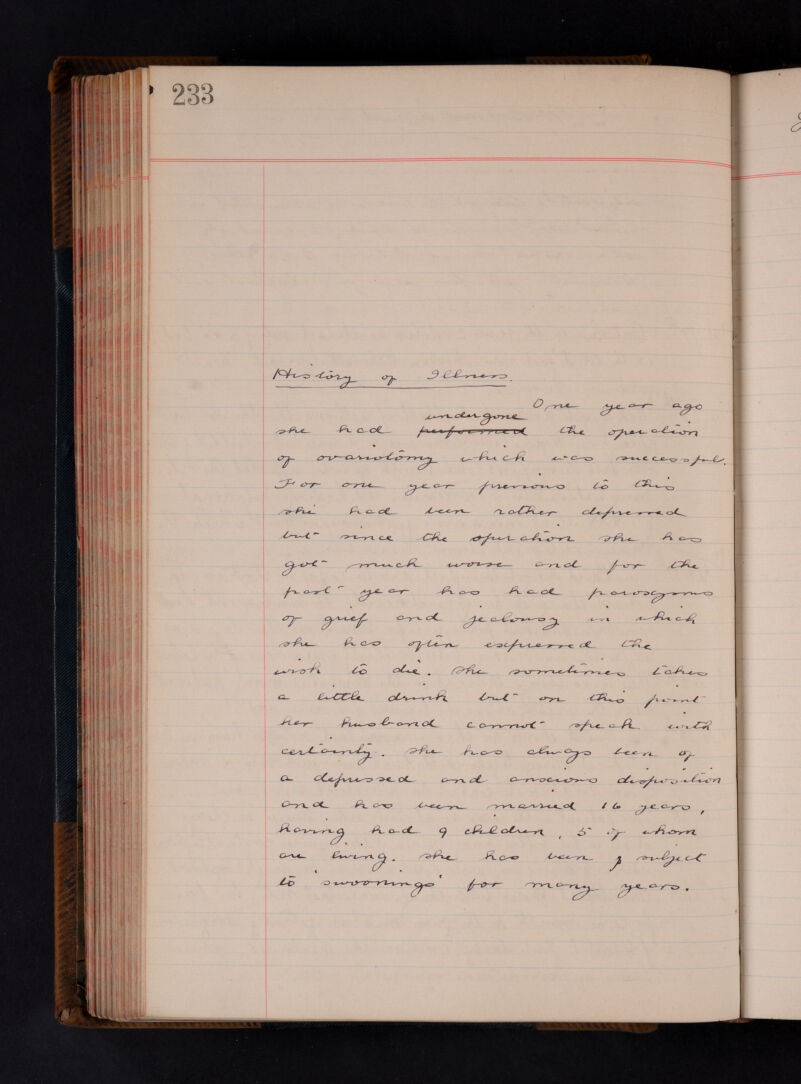 233
History of Illness.
One year ago
she had performed undergone the operation
of ovariotomy which was successful.
For one year previous to this
she had been rather depressed
but since the operation she has
got much worse and for the
past year has had paroxysms
of grief and jealousy in which
she has often expressed the
wish to die. She sometimes takes
a little drink but on this point
her husband cannot speak with
certainty. She has always been of
a depressed and anxious disposition
and has been married 16 years,
having had 9 children, 5 of whom
are living. She has been subject
to 'swoonings' for many years.